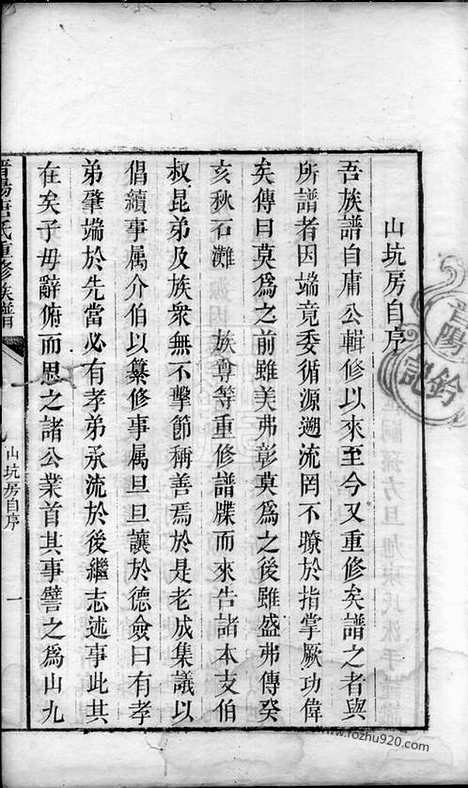 山坑房自序
吾族譜自庸公輯修以來至今又重修矣譜之者與
所譜者因端竟委循源遡流罔不瞭於指掌厥功偉
矣傳曰莫為之前雖美弗彰莫為之後雖盛弗傳癸
亥秋石灘　族尊等重修譜牒而來告諸本支伯
叔昆弟及族衆無不擊節稱善焉於是老成集議以
倡續事属介伯以纂修事属旦旦讓於德僉曰有孝
弟肇端於先當必有孝弟承流於後繼志述事此其
在矣子毋辭俯而思之諸公業首其事譬之為山九
晉陽唐氏重修族譜
山坑房自序
一
晉陽
鈐記
www.fozhu920.com